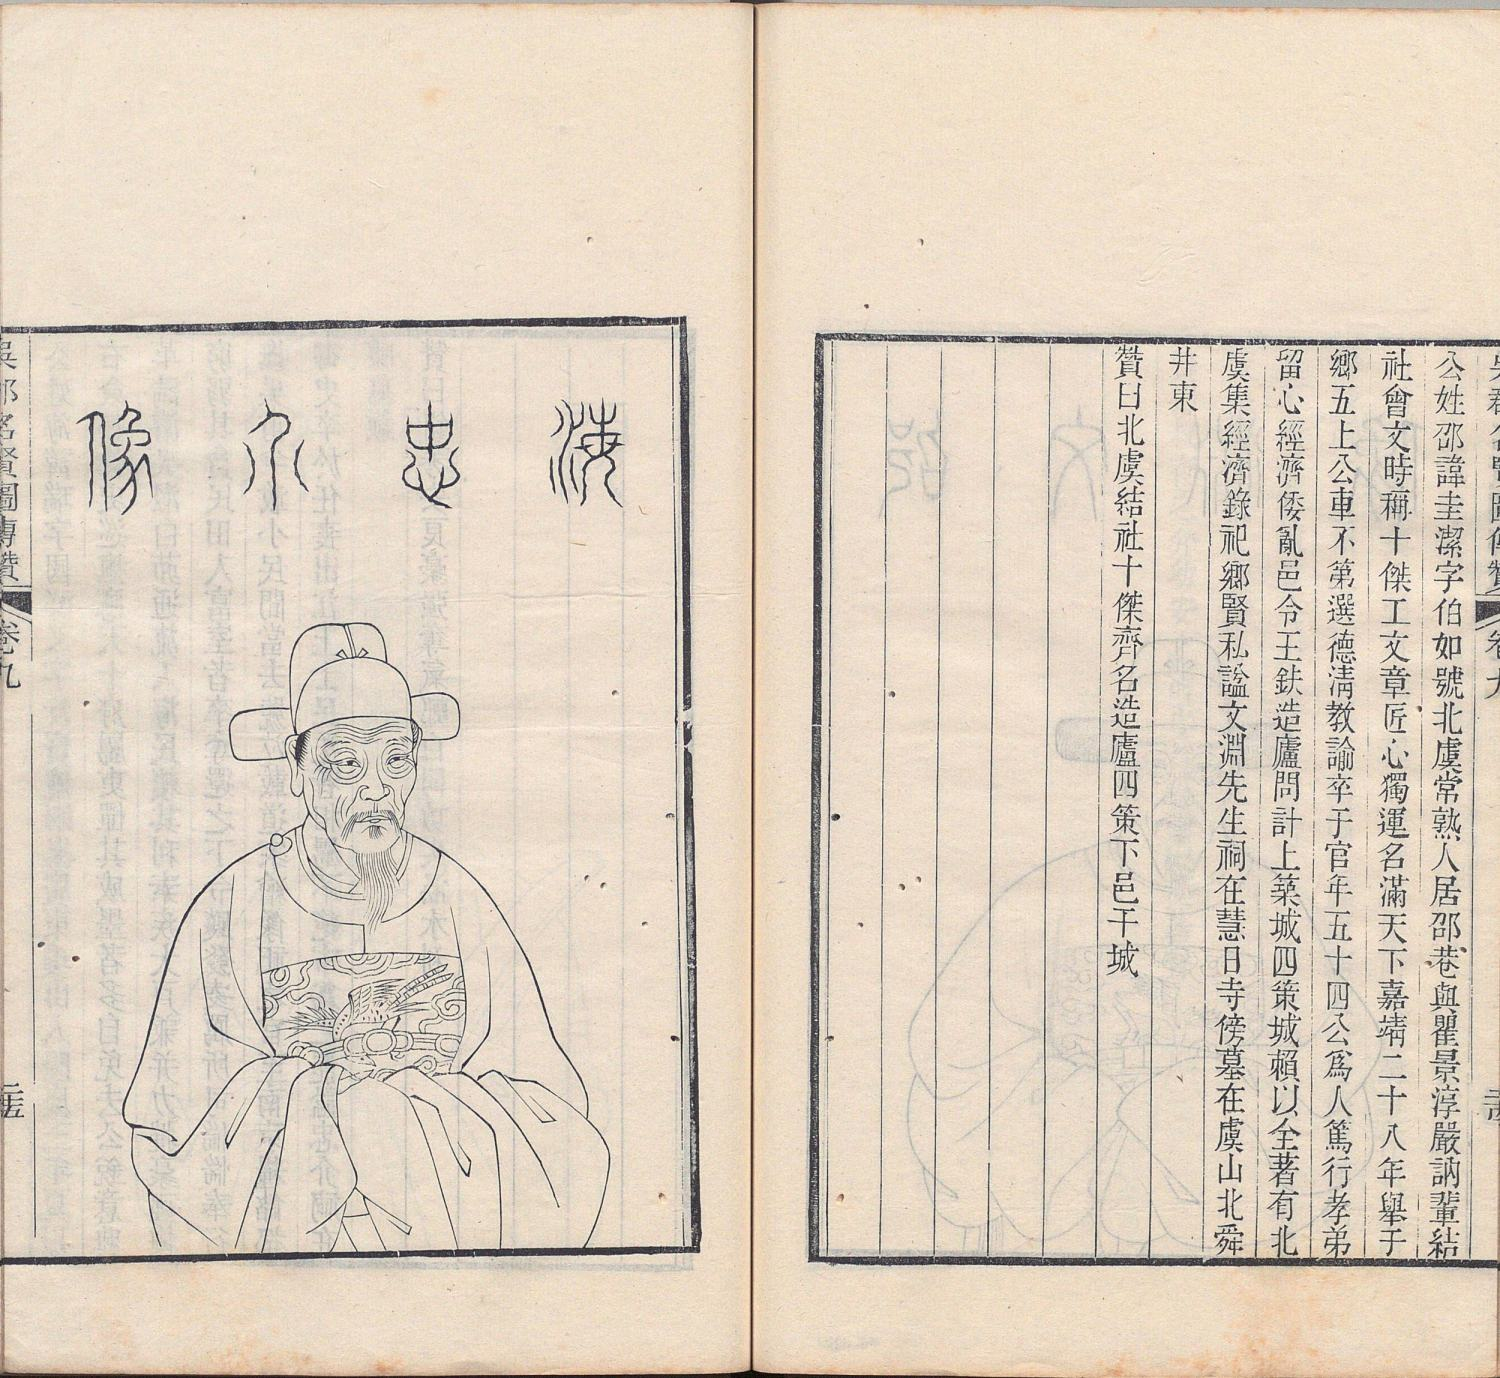 公姓邵諱圭潔字伯如號北虞常熟人居邵巷與瞿景淳嚴訥輩結
社會文時稱十傑工文章匠心獨運名滿天下嘉靖二十八年舉于
鄉五上公車不第選德淸教諭卒于官年五十四公爲人篤行孝弟
留心經濟倭亂邑令王鈇造廬問計上築城四策城賴以全著有北
虞集經濟錄祀鄉賢私謚文淵先生祠在慧日寺傍墓在虞山北舜
井東
贊曰北虞結社十傑齊名造廬四策下邑干城
海忠介像
吳郡名賢圖傳贊 卷九